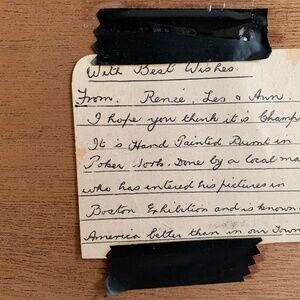 With Best Wishes
From. Renie, Les & Ann.
I hope you think it is Champ
It is Hand Painted Burnt in
Poker Work. Done by a local ma
who has entered his pictures in
Boston Exhibition and is known
America better than in our Town